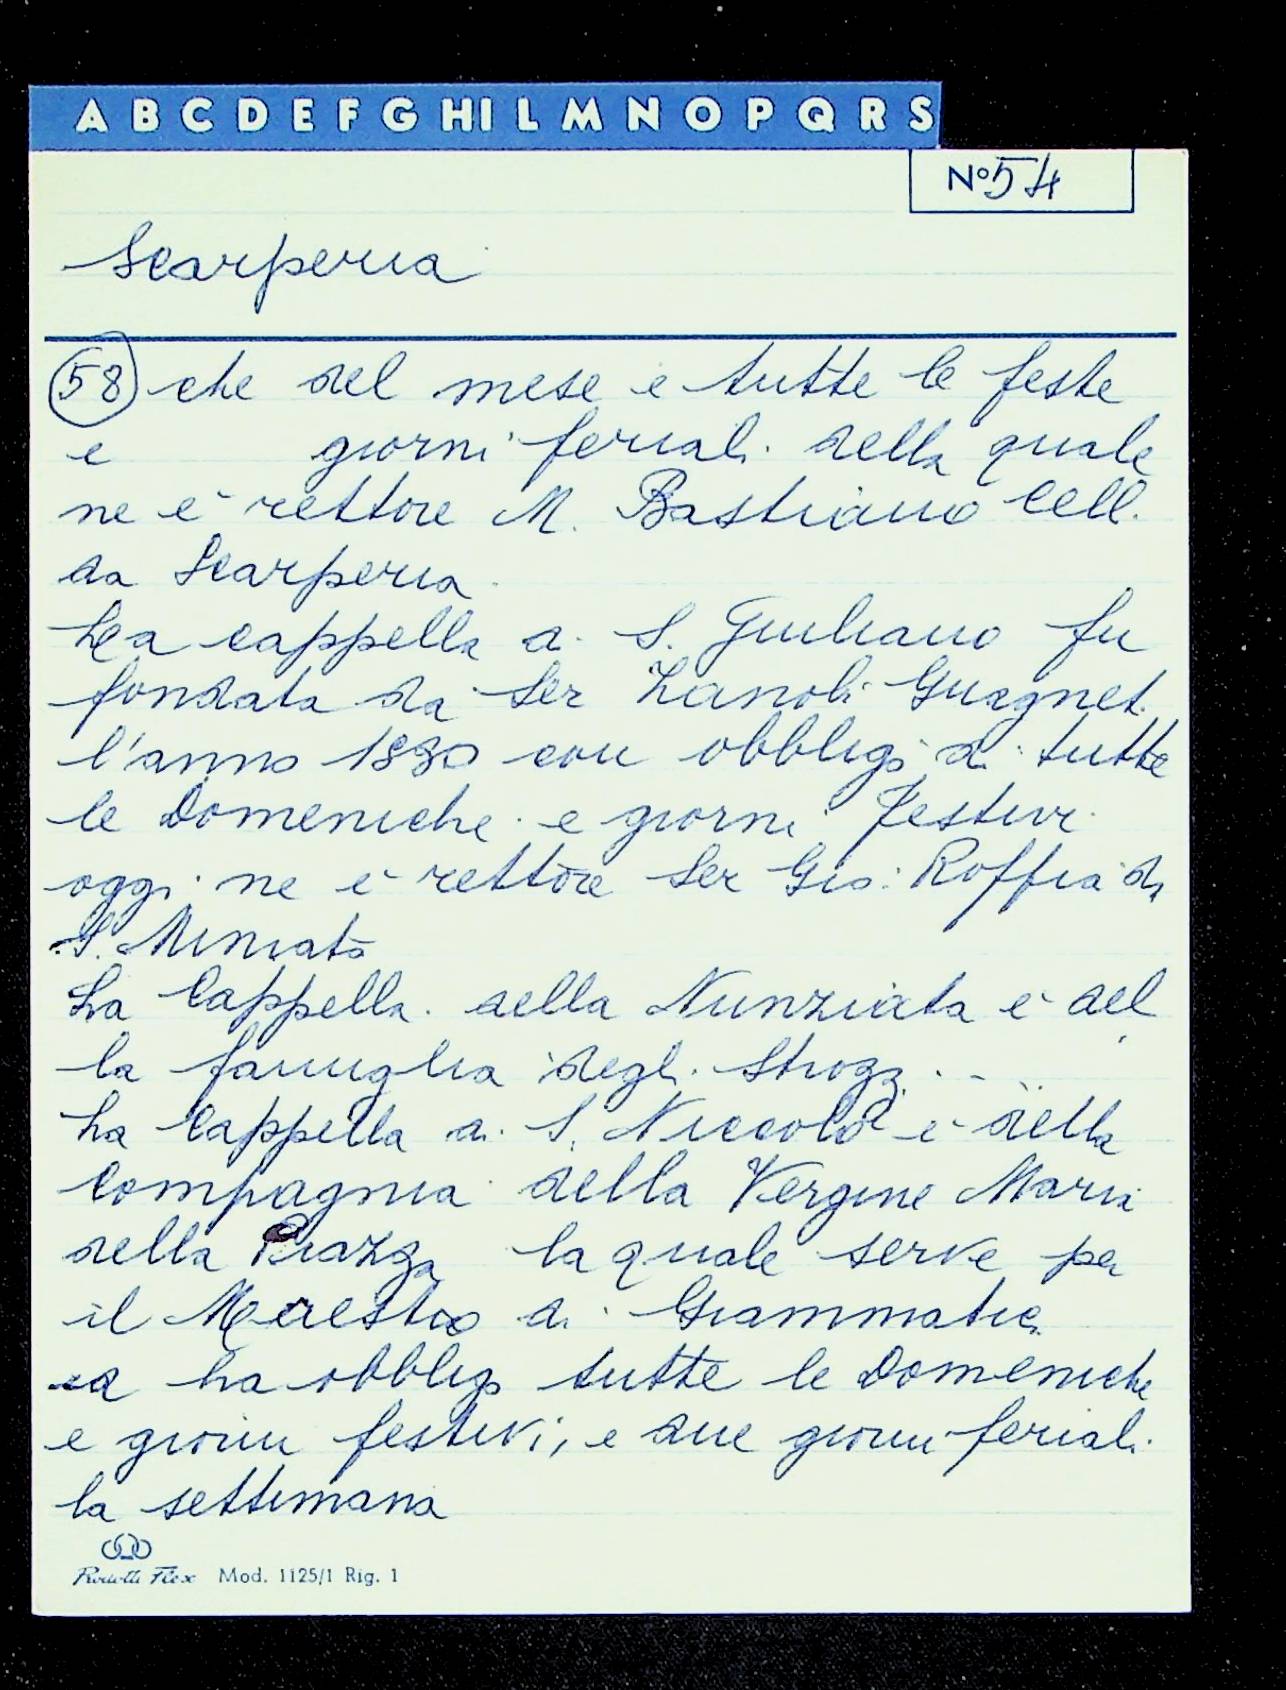 A B C D E F G H I L M N O P Q R S
N° 54
Scarperia
58 che del mese e tutte le feste
e giorni feriali della quale
ne è rettore M. Bastiano Celli
da Scarperia
La cappella di S. Giuliano fu
fondata da Ser Zanobi
l'anno con obbligo di tutte
le Domeniche e giorni festivi
oggi ne è rettore Ser Gio: Roffia di
S. Miniato
La Cappella della Nunziata è del
la famiglia degli Strozzi
La Cappella di S. Niccolò è della
Compagnia della Vergine Maria
della Piazza la quale serve per
il Maestro di Grammatica
ed ha obbligo tutte le Domeniche
e giorni festivi, e due giorni feriali
la settimana
Mod. 1125/1 Rig. 1